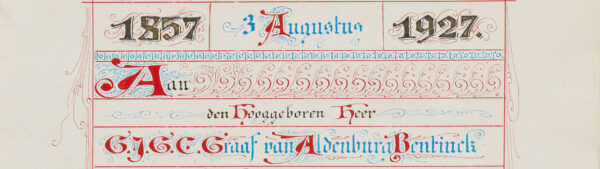 1857 3 Augustus 1927.
Aan
den Hooggeboren Heer
G.J.G.C. Graaf van Aldenburg Bentinck